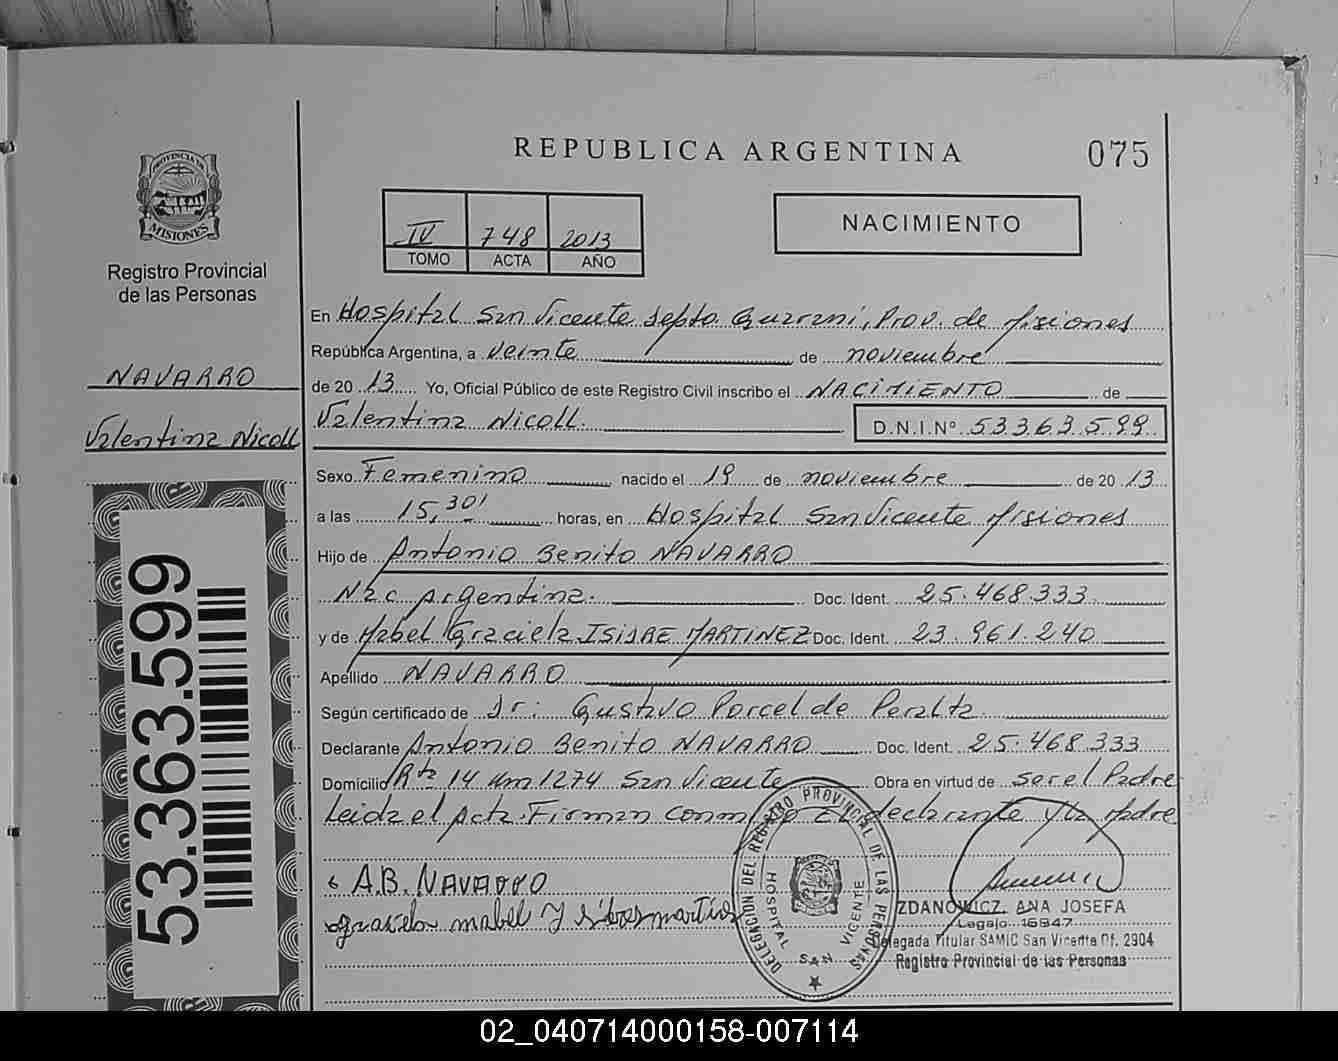 REPUBLICA ARGENTINA
075
PROVINCIA DE
MISIONES
Registro Provincial
de las Personas
NAVARRO
Valentina Nicoll
53.363.599
IV 748 2013
TOMO ACTA AÑO
NACIMIENTO
En Hospital San Vicente Depto Guarani, Prov. de Misiones
República Argentina, a veinte de noviembre
de 20 13 Yo, Oficial Público de este Registro Civil inscribo el NACIMIENTO de
Valentina Nicoll. D.N.I.Nº 53363599
Sexo Femenino nacido el 19 de noviembre de 20 13
a las 15,30' horas, en Hospital San Vicente Misiones
Hijo de Antonio Benito NAVARRO
Nac Argentina. Doc. Ident. 25.468.333
y de Mabel Graciela ISISRE MARTINEZ Doc. Ident. 23.961.240
Apellido NAVARRO
Según certificado de Dr: Gustavo Porcel de Peralta
Declarante Antonio Benito NAVARRO Doc. Ident. 25.468.333
Domicilio Rta 14 Km 1274 San Vicente Obra en virtud de ser el Padre
Leida el Acta. Firman conmigo El declarante y la Madre
A.B. NAVARRO
mabel
DELEGACION DEL REGISTRO PROVINCIAL DE LAS PERSONAS
HOSPITAL SAN VICENTE
ZDANOWICZ, ANA JOSEFA
Legajo 16847
Delegada Titular SAMIC San Vicente Of. 2904
Registro Provincial de las Personas
02_040714000158-007114